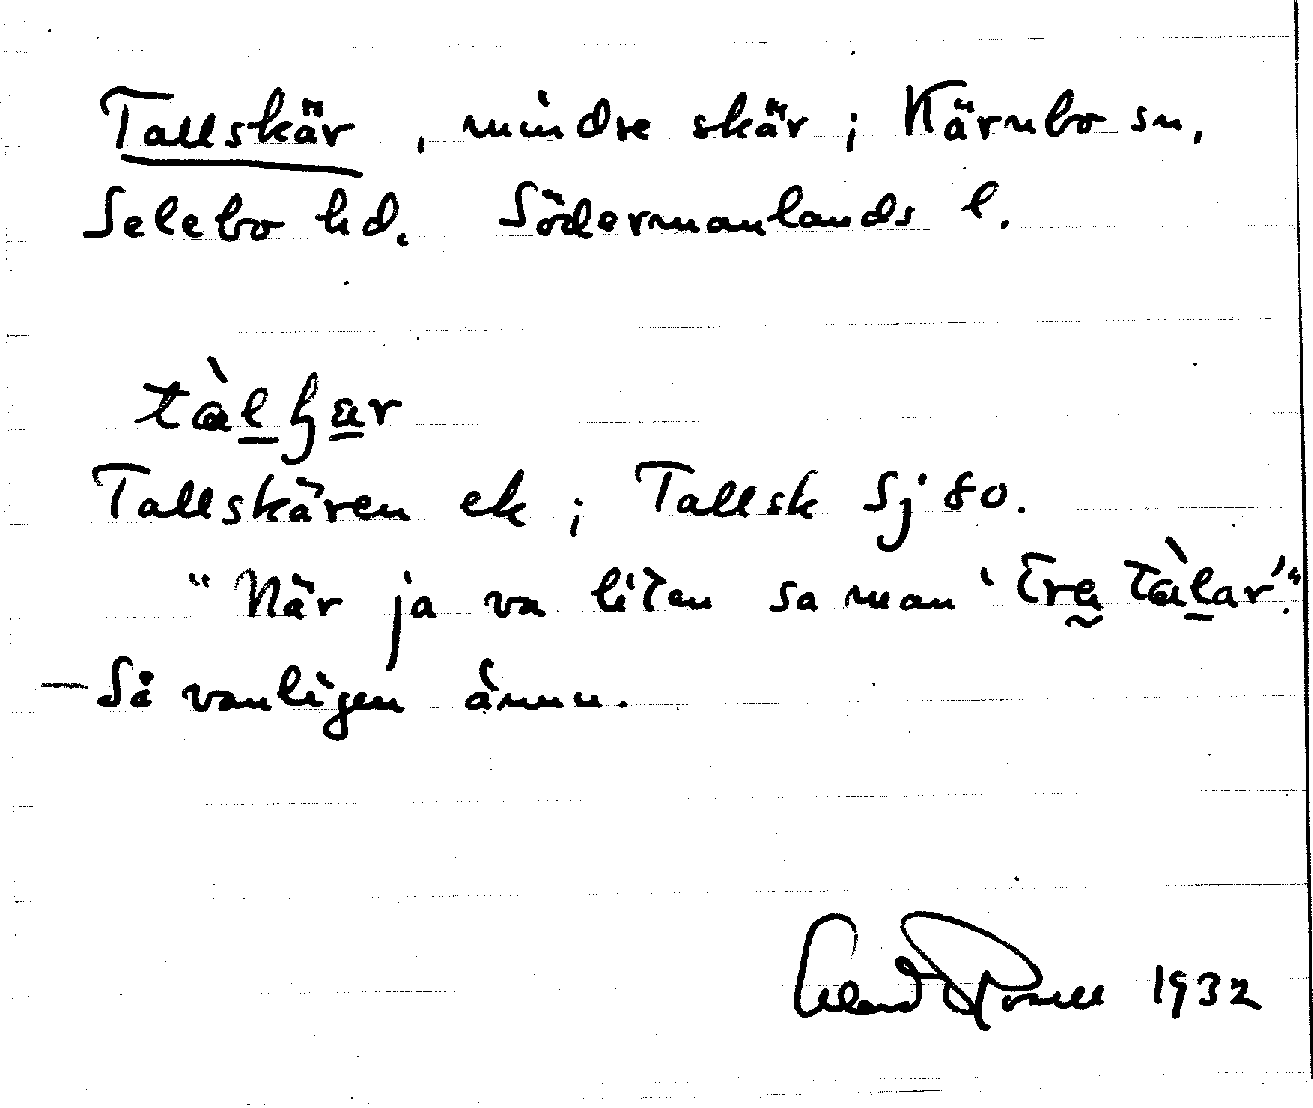 Tallskär, mindre skär; Kärnbo sn,
Selebo hd. Södermanlands l.
tàlʃär
Tallskären ek; Tallsk Sj 80.
"När ja va liten sa man 'tre tàlar'."
— Så vanligen ännu.
1932